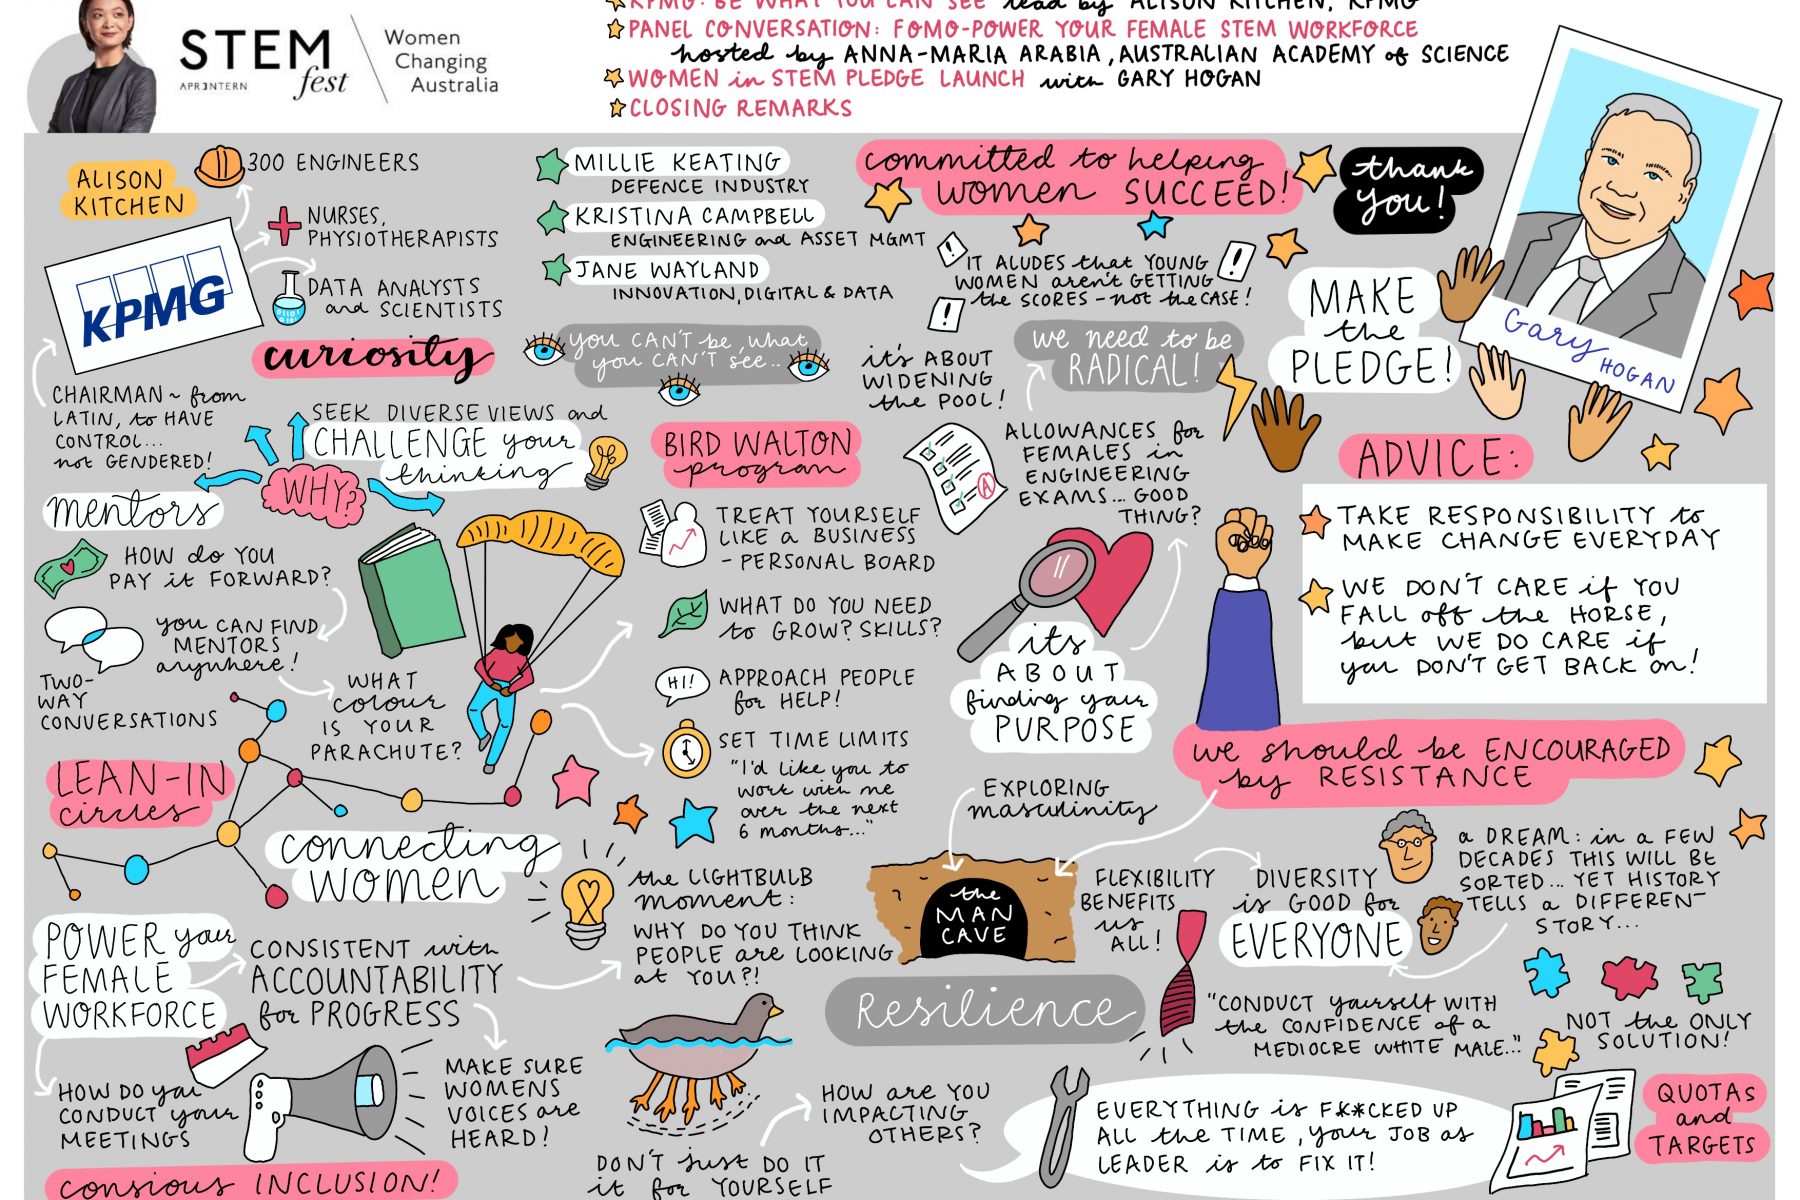 STEM
fest
APR3NTERN
Women
Changing
Australia
KPMG: BE WHAT YOU CAN SEE lead by ALISON KITCHEN, KPMG
PANEL CONVERSATION: FOMO-POWER YOUR FEMALE STEM WORKFORCE
hosted by ANNA-MARIA ARABIA, AUSTRALIAN ACADEMY of SCIENCE
WOMEN in STEM PLEDGE LAUNCH with GARY HOGAN
CLOSING REMARKS
ALISON
KITCHEN
300 ENGINEERS
NURSES,
PHYSIOTHERAPISTS
DATA ANALYSTS
and SCIENTISTS
KPMG
CHAIRMAN ~ from
LATIN, to HAVE
CONTROL...
not GENDERED!
curiosity
SEEK DIVERSE VIEWS and
CHALLENGE your
thinking
WHY?
MILLIE KEATING
DEFENCE INDUSTRY
KRISTINA CAMPBELL
ENGINEERING and ASSET MGMT
JANE WAYLAND
INNOVATION, DIGITAL & DATA
you CAN'T be, what
you CAN'T see...
committed to helping
women SUCCEED!
thank
you!
! IT ALUDES that YOUNG !
WOMEN aren't GETTING
! the SCORES - not the CASE!
it's ABOUT
WIDENING
the POOL!
we need to be
RADICAL!
ALLOWANCES for
FEMALES in
ENGINEERING
EXAMS... GOOD
THING?
A
MAKE
the
PLEDGE!
Gary
HOGAN
mentors
HOW do YOU
PAY it FORWARD?
you CAN FIND
MENTORS
anywhere!
TWO-
WAY
CONVERSATIONS
WHAT
colour
IS YOUR
PARACHUTE?
BIRD WALTON
program
TREAT YOURSELF
LIKE a BUSINESS
- PERSONAL BOARD
WHAT DO YOU NEED
to GROW? SKILLS?
HI!
APPROACH PEOPLE
for HELP!
SET TIME LIMITS
"I'd like you to
work with me
over the next
6 months..."
its
ABOUT
finding your
PURPOSE
ADVICE:
TAKE RESPONSIBILITY to
MAKE CHANGE EVERYDAY
WE DON'T CARE if YOU
FALL off the HORSE,
but WE DO CARE if
you DON'T GET BACK on!
we should be ENCOURAGED
by RESISTANCE
LEAN-IN
circles
connecting
WOMEN
EXPLORING
masculinity
the
MAN
CAVE
the LIGHTBULB
moment:
WHY DO YOU THINK
PEOPLE are LOOKING
at YOU?!
FLEXIBILITY
BENEFITS
us
ALL!
DIVERSITY
is GOOD for
EVERYONE
a DREAM: in a FEW
DECADES THIS WILL BE
SORTED... YET HISTORY
TELLS a DIFFERENT
STORY...
POWER your
FEMALE
WORKFORCE
CONSISTENT with
ACCOUNTABILITY
for PROGRESS
Resilience
"CONDUCT yourself WITH
the CONFIDENCE of a
MEDIOCRE WHITE MALE..."
NOT the ONLY
SOLUTION!
HOW DO you
CONDUCT your
MEETINGS
MAKE SURE
WOMENS
VOICES are
HEARD!
HOW are YOU
IMPACTING
OTHERS?
DON'T just DO IT
it for YOURSELF
EVERYTHING is F&*CKED UP
ALL the TIME, your JOB as
LEADER is to FIX IT!
QUOTAS
and
TARGETS
consious INCLUSION!